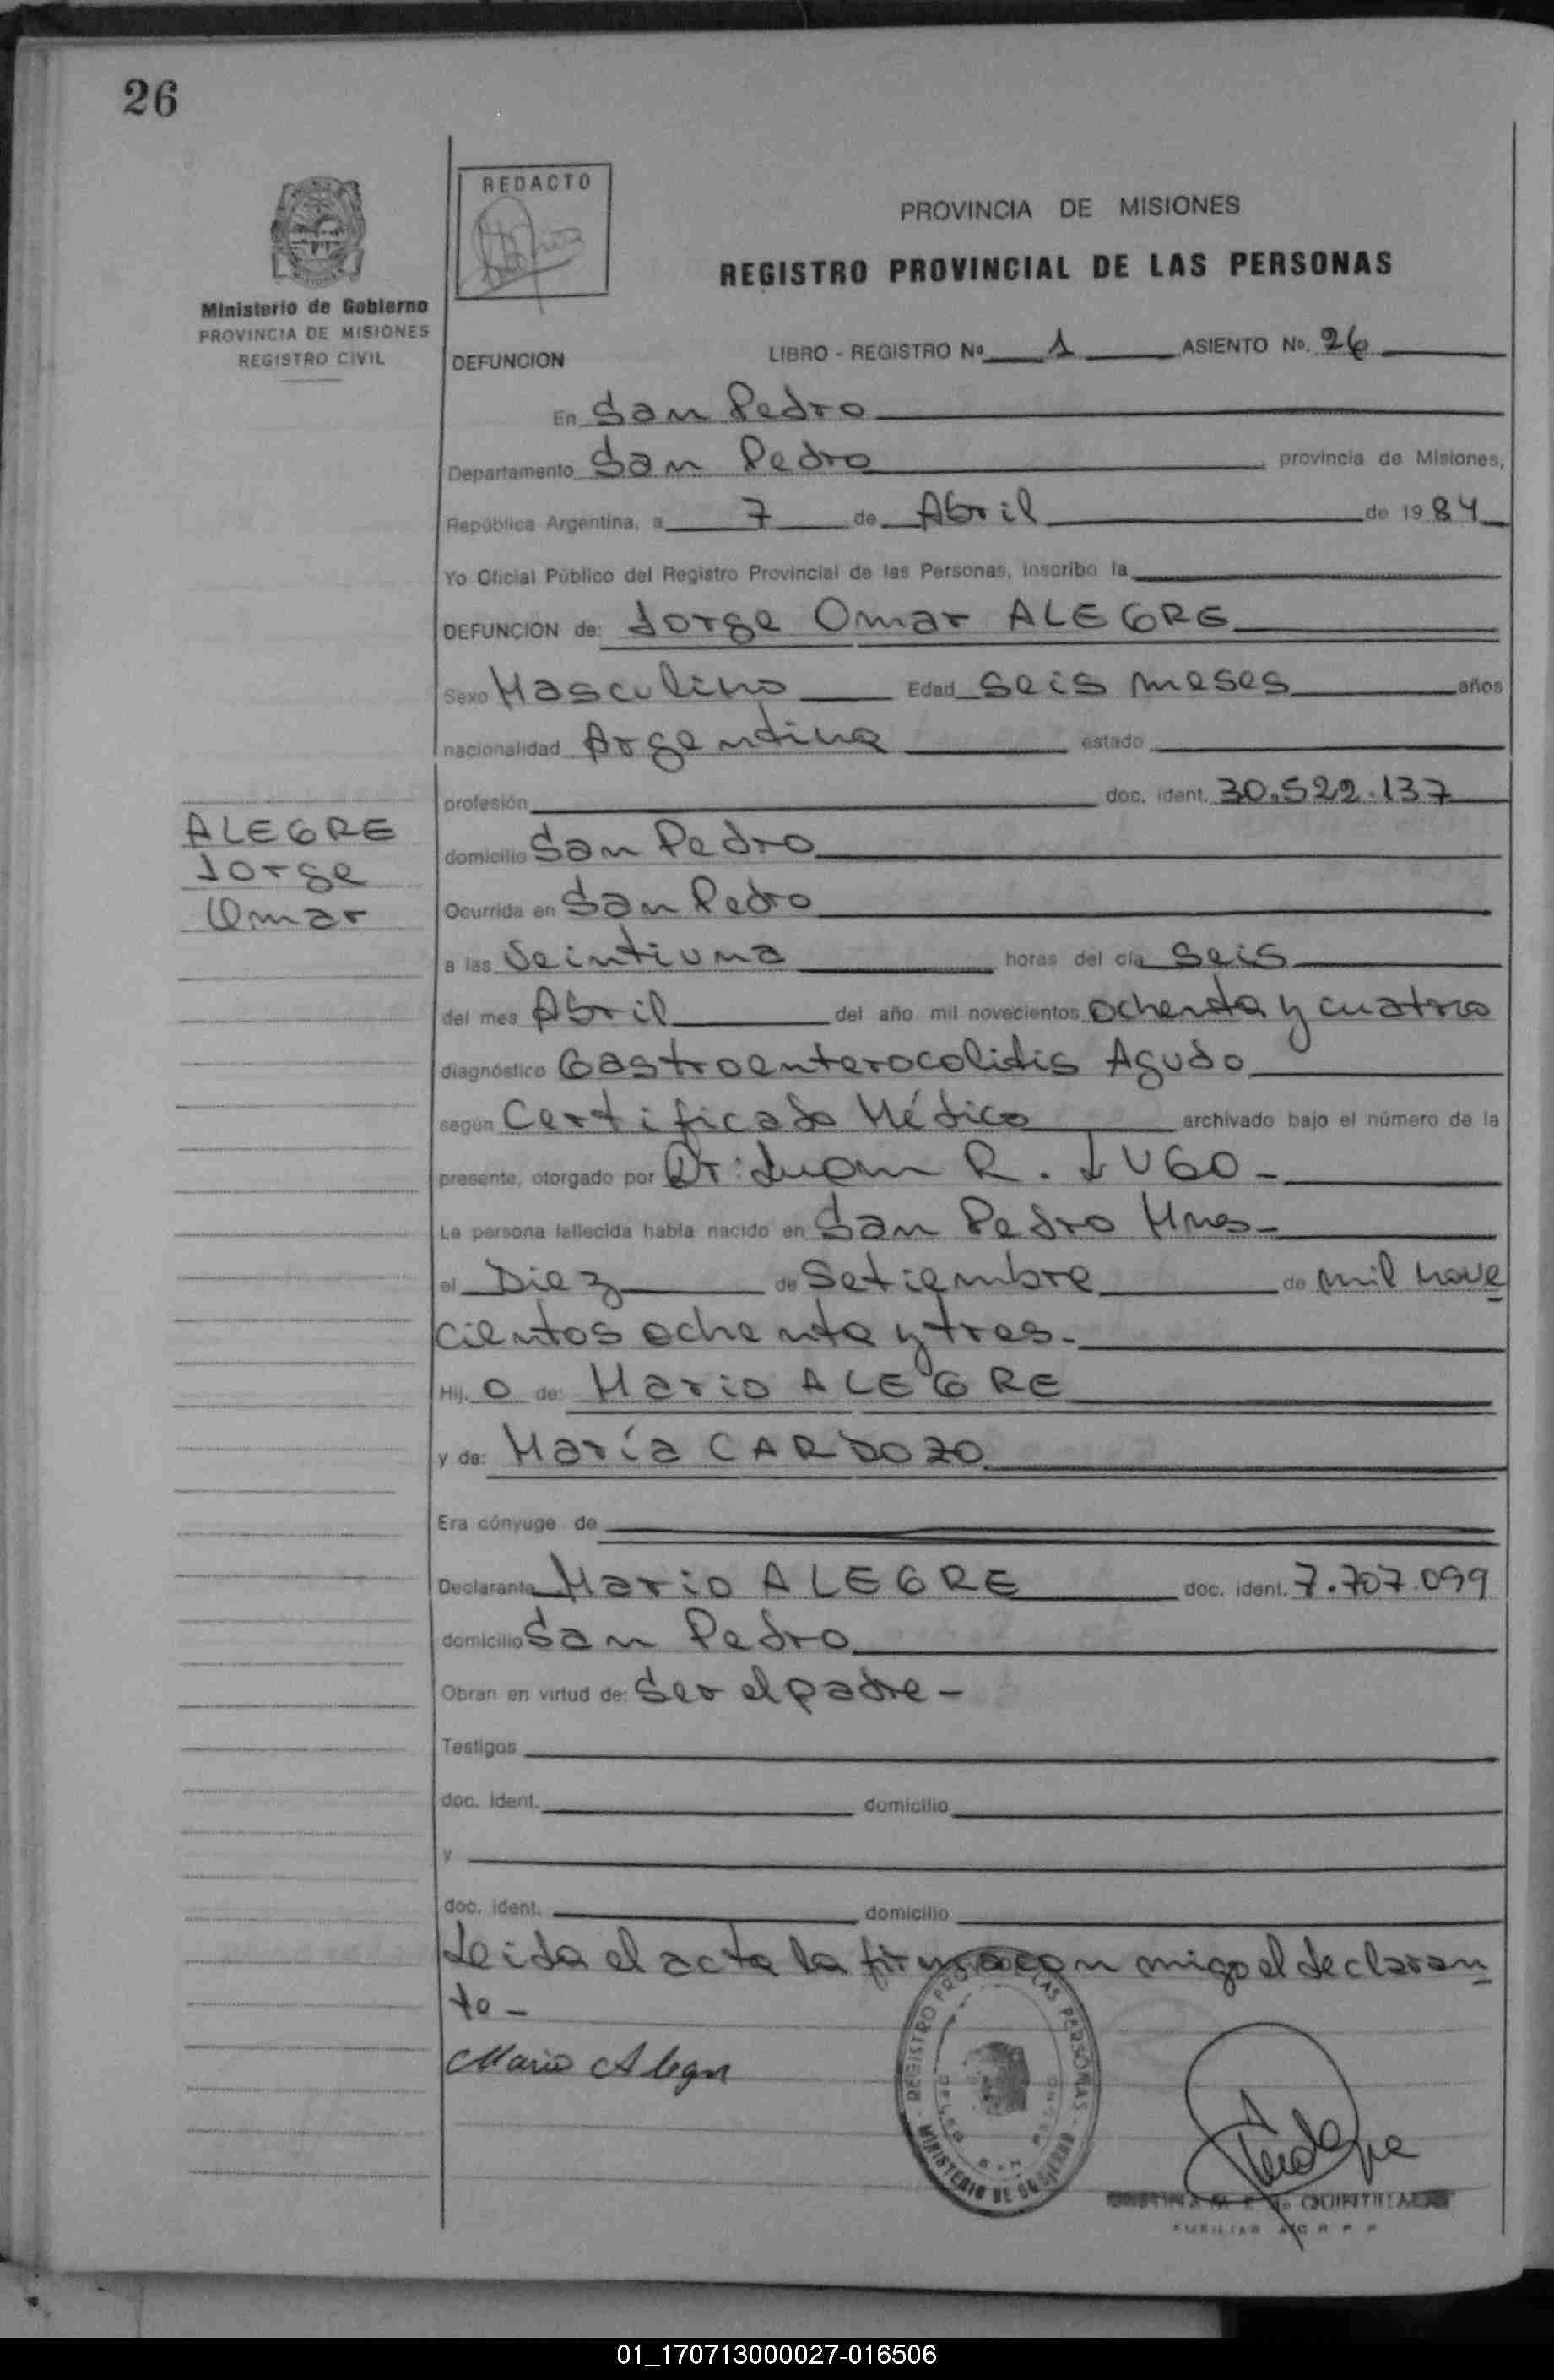 26
REDACTO
PROVINCIA DE MISIONES
REGISTRO PROVINCIAL DE LAS PERSONAS
Ministerio de Gobierno
PROVINCIA DE MISIONES
REGISTRO CIVIL
DEFUNCION LIBRO - REGISTRO Nº 1 ASIENTO Nº. 26
En San Pedro
Departamento San Pedro, provincia de Misiones,
República Argentina, a 7 de Abril de 1984
Yo Oficial Público del Registro Provincial de las Personas, inscribo la
DEFUNCION de: Jorge Omar ALEGRE
Sexo Masculino Edad seis meses años
nacionalidad Argentina estado
profesión doc. ident. 30.522.137
ALEGRE
Jorge
Omar
domicilio San Pedro
Ocurrida en San Pedro
a las Veintiuna horas del día seis
del mes Abril del año mil novecientos ochenta y cuatro
diagnóstico Gastroenterocolitis Agudo
según Certificado Médico archivado bajo el número de la
presente, otorgado por Dr: Juan R. LUGO -
La persona fallecida había nacido en San Pedro Mnes-
el Diez de Setiembre de mil nove
cientos ochenta y tres.-
Hij o de: Mario ALEGRE
y de: María CARDOZO
Era cónyuge de
Declarante Mario ALEGRE doc. ident. 7.707.099
domicilio San Pedro
Obran en virtud de: Ser el padre -
Testigos
doc. ident. domicilio
y
doc. ident. domicilio
Leida el acta la firma con migo el declaran
te -
Mario Alegre
REGISTRO PROVINCIAL DE LAS PERSONAS
MINISTERIO DE GOBIERNO
de QUINTELA
AUXILIAR
01_170713000027-016506